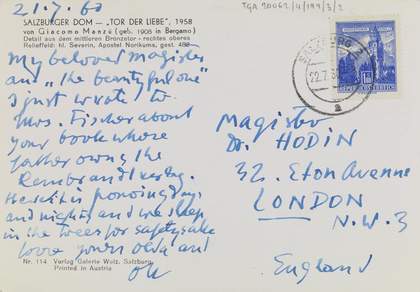 21.7.60
TGA 20062/4/199/3/2
SALZBURGER DOM — „TOR DER LIEBE", 1958
von Giacomo Manzù (geb. 1908 in Bergamo)
Detail aus dem mittleren Bronzetor - rechtes oberes
Relieffeld: hl. Severin, Apostel Norikums, gest. 482
My beloved magister
and „the beautiful one"
I just wrote to
Mrs. Fischer about
your book whose
father owns the
Rembrandt
Here it is pouring day
and night and we sleep
in the trees for safety sake
love yours olda and
OK
Nr. 114 Verlag Galerie Welz, Salzburg
Printed in Austria
SALZBURG 2
22.7.
a
REPUBLIK ÖSTERREICH
Magister
Dr. HODIN
32. Eton Avenue
LONDON
N.W.3
England